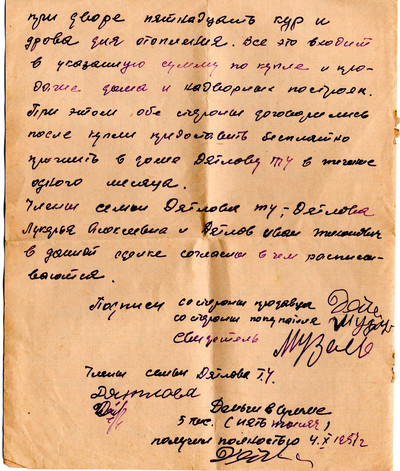 при дворе пятнадцать кур и
дрова для отопления. Все это входит
в указанную сумму по купле и про-
даже дома и надворных построек.
При этом обе стороны договорились
после купли предоставить бесплатно
прожить в доме Дятлову ТУ в течение
одного месяца.
Члены семьи Дятлова ТУ, - Дятлова
Лукерья Алексеевна и Дятлов Иван
в данной сделке согласны в чем расписы-
ваются.
Подписи со стороны продавца
со стороны покупателя
Свидетель
Члены семьи Дятлова Т.У.
Дятлова
Деньги в сумме
5 тыс. (пять тысяч)
получил полностью 4.X 1951г